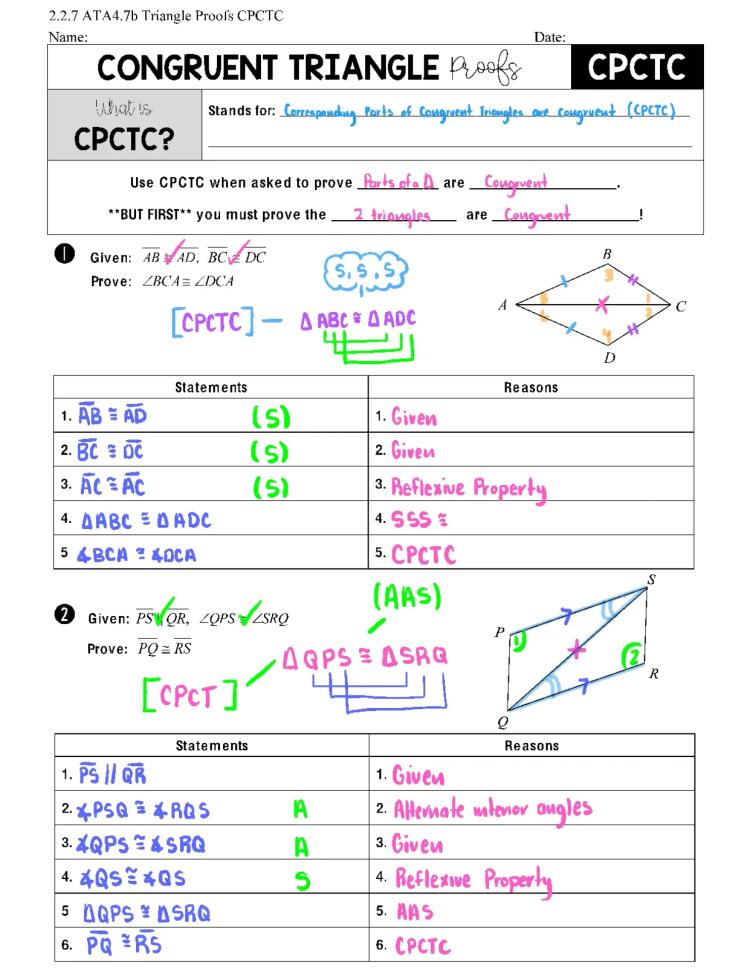 2.2.7 ATA4.7b Triangle Proofs CPCTC
Name: Date:
CONGRUENT TRIANGLE Proofs CPCTC
What is
CPCTC?
Stands for: Corresponding Parts of Congruent Triangles are congruent (CPCTC)
Use CPCTC when asked to prove Parts of a Δ are Congruent.
**BUT FIRST** you must prove the 2 triangles are Congruent!
1 Given: AB ≅ AD, BC ≅ DC
Prove: ∠BCA ≅ ∠DCA
S, S, S
[CPCTC] — Δ ABC ≅ Δ ADC
B
A
C
D
3
1
2
4
5
6
Statements Reasons
1. AB ≅ AD (S) 1. Given
2. BC ≅ DC (S) 2. Given
3. AC ≅ AC (S) 3. Reflexive Property
4. ΔABC ≅ ΔADC 4. SSS ≅
5 ∡BCA ≅ ∡DCA 5. CPCTC
2 Given: PS ∥ QR, ∠QPS ≅ ∠SRQ
Prove: PQ ≅ RS
(AAS)
ΔQPS ≅ ΔSRQ
[CPCT]
S
P
1
2
R
Q
Statements Reasons
1. PS // QR 1. Given
2. ∡PSQ ≅ ∡RQS A 2. Alternate interior angles
3. ∡QPS ≅ ∡SRQ A 3. Given
4. ∡QS ≅ ∡QS S 4. Reflexive Property
5 ΔQPS ≅ ΔSRQ 5. AAS
6. PQ ≅ RS 6. CPCTC